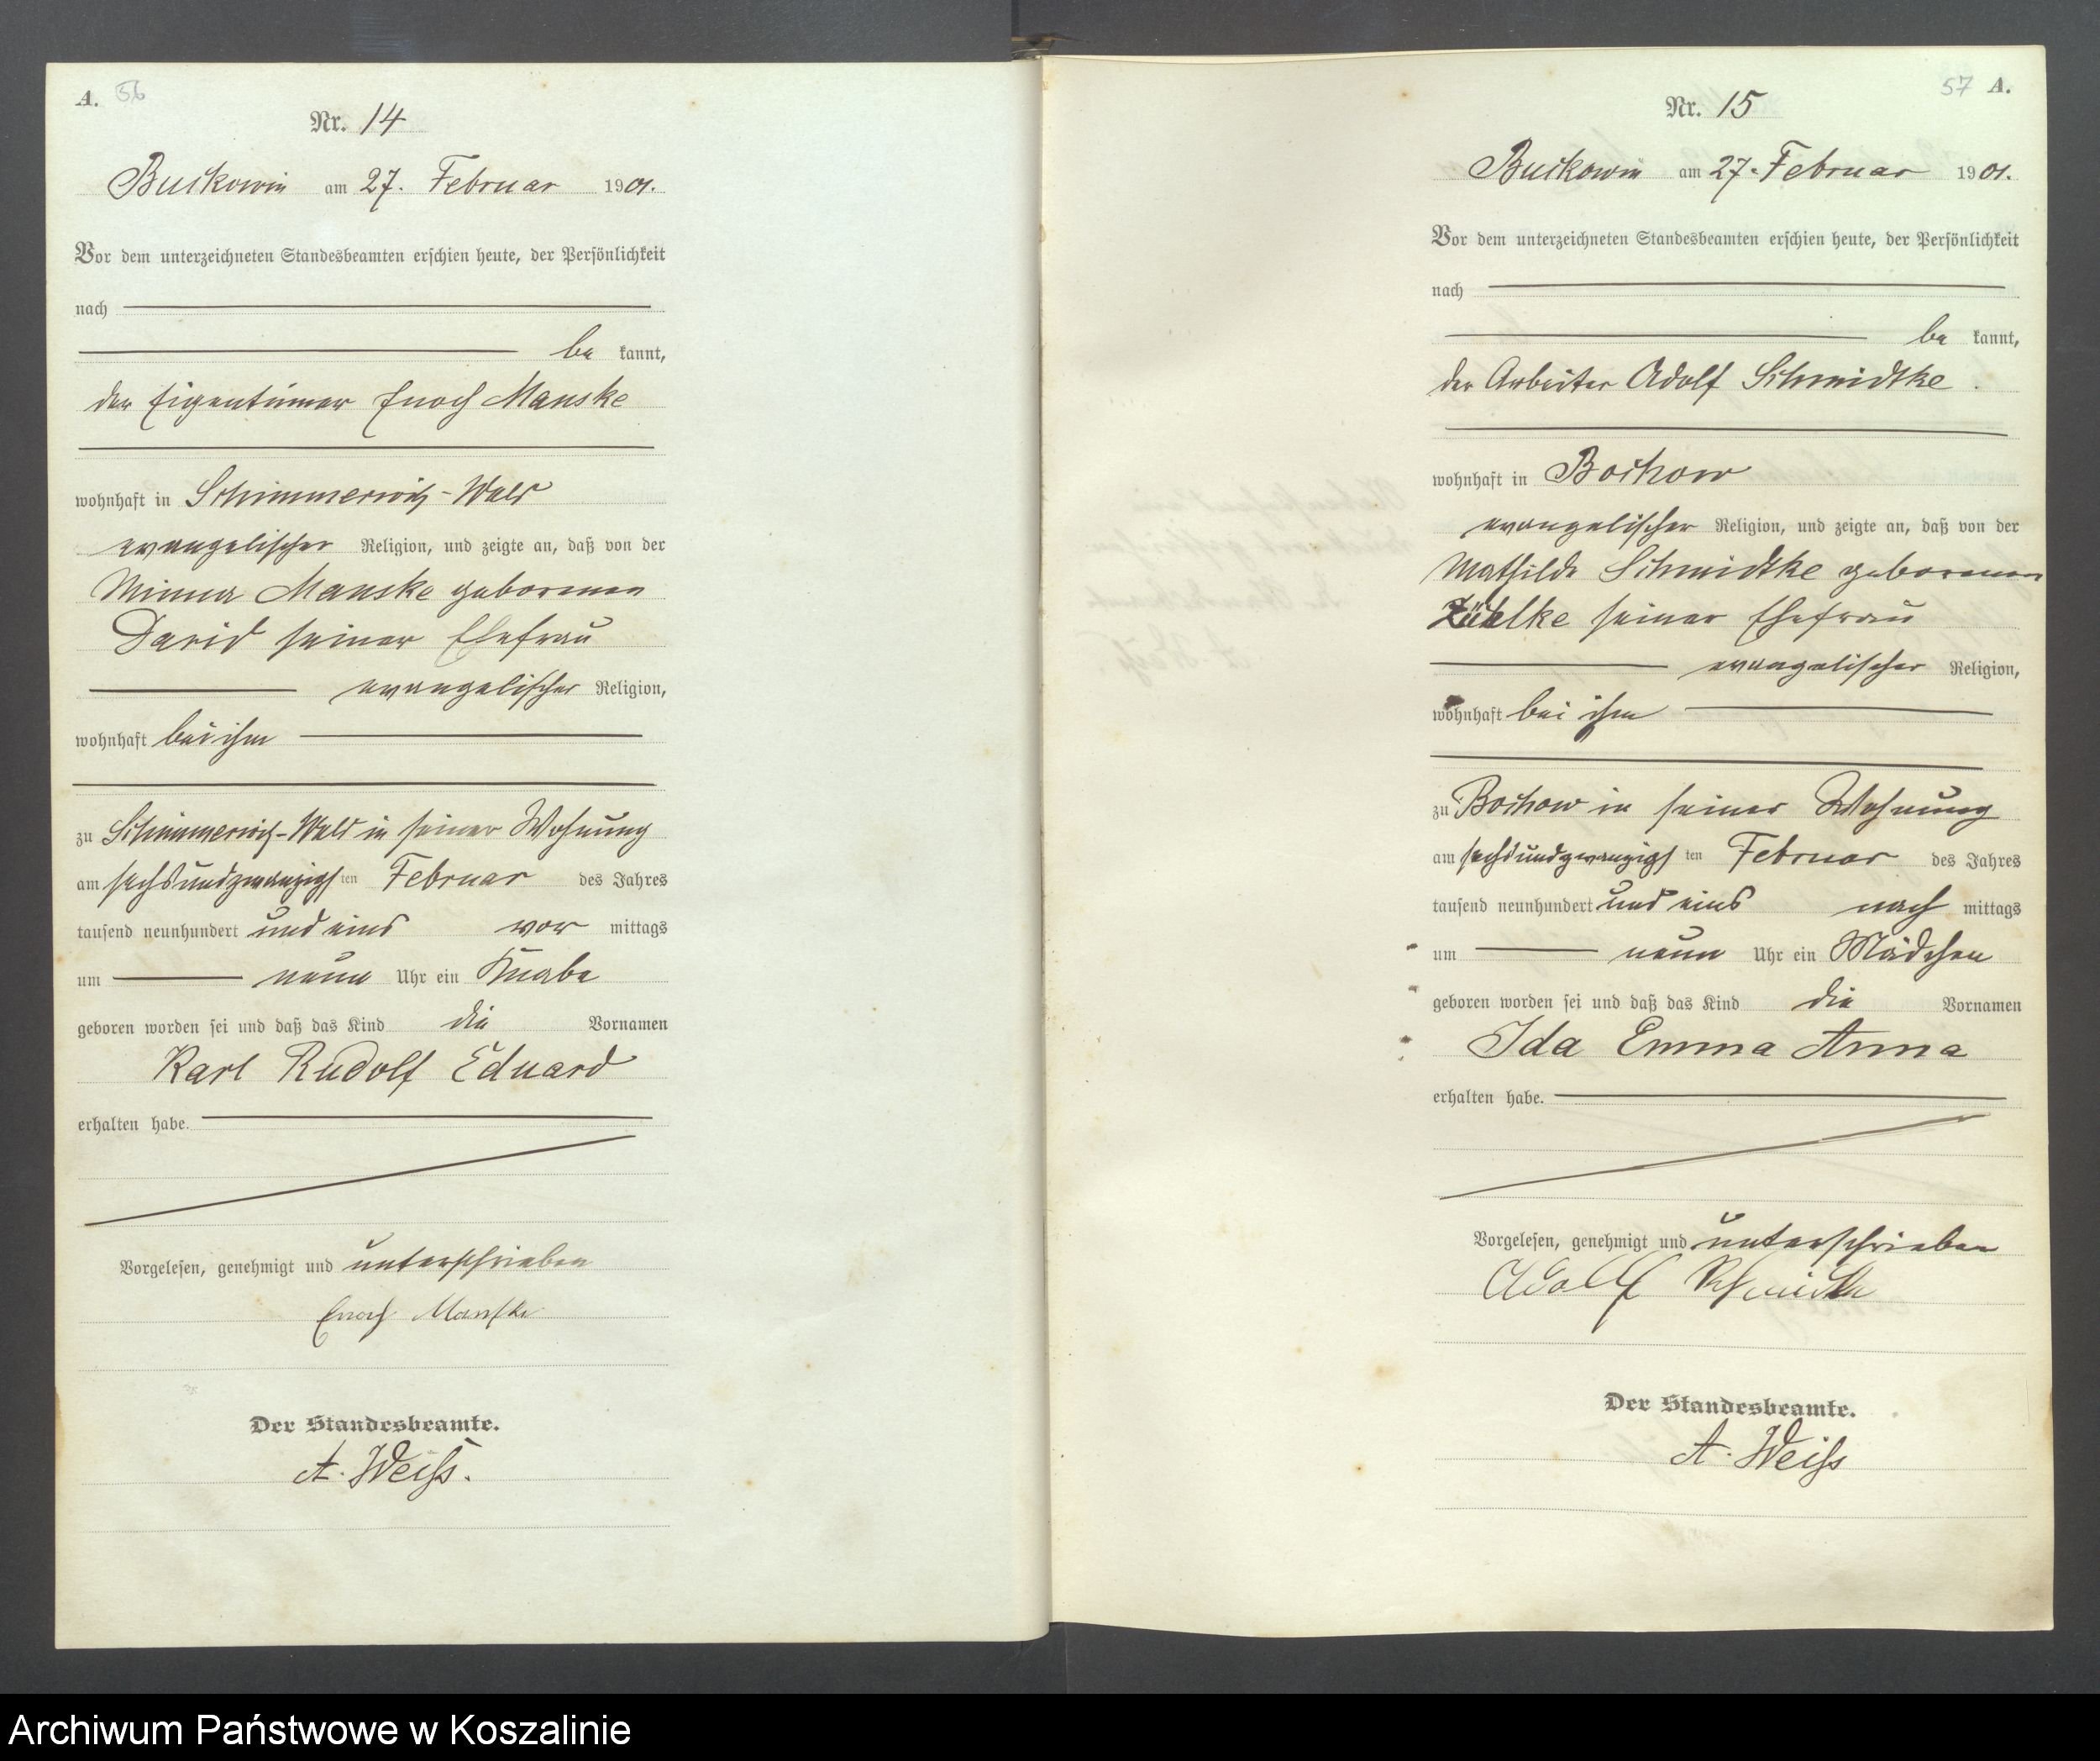 A. 56
Nr. 14
Buckowin am 27. Februar 1901.
Vor dem unterzeichneten Standesbeamten erschien heute, der Persönlichkeit
nach
be kannt,
der Eigentümer Enoch Manske
wohnhaft in Schimmerwitz-Wald
evangelischer Religion, und zeigte an, daß von der
Minna Manske geborenen
David seiner Ehefrau
evangelischer Religion,
wohnhaft bei ihm
zu Schimmerwitz-Wald in seiner Wohnung
am sechsundzwanzigsten Februar des Jahres
tausend neunhundert und eins vor mittags
um neun Uhr ein Knabe
geboren worden sei und daß das Kind die Vornamen
Karl Rudolf Eduard
erhalten habe.
Vorgelesen, genehmigt und unterschrieben
Enoch Manske
Der Standesbeamte.
A. Weiss.
57 A.
Nr. 15
Buckowin am 27. Februar 1901.
Vor dem unterzeichneten Standesbeamten erschien heute, der Persönlichkeit
nach
be kannt,
der Arbeiter Adolf Schmidtke.
wohnhaft in Bochow
evangelischer Religion, und zeigte an, daß von der
Mathilde Schmidtke geborenen
Zühlke seiner Ehefrau
evangelischer Religion,
wohnhaft bei ihm
zu Bochow in seiner Wohnung
am sechsundzwanzigsten Februar des Jahres
tausend neunhundert und eins nach mittags
um neun Uhr ein Mädchen
geboren worden sei und daß das Kind die Vornamen
Ida Emma Anna
erhalten habe.
Vorgelesen, genehmigt und unterschrieben
Adolf
Der Standesbeamte.
A. Weiss
Archiwum Państwowe w Koszalinie